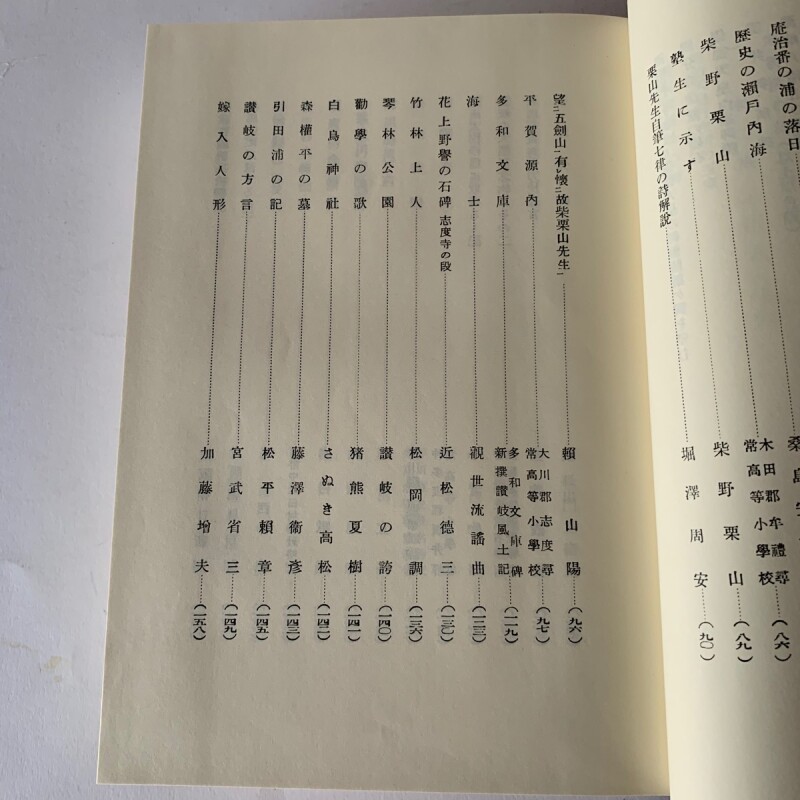 庵治番の浦の落日
歴史の瀬戸內海 木田郡牟禮尋常高等小學校 (八六)
柴野栗山 柴野栗山 (八九)
塾生に示す
栗山先生自筆七律の詩解說 堀澤周安 (九〇)
望二五劍山一有レ懷二故柴栗山先生一 賴山陽 (九六)
平賀源內 大川郡志度尋常高等小學校 (九七)
多和文庫 多和文庫碑 新撰讃岐風土記 (一一九)
海士 觀世流謠曲 (一二三)
花上野譽の石碑 志度寺の段 近松德三 (一三〇)
竹林上人 松岡調 (一三六)
琴林公園 讃岐の誇 (一四〇)
勸學の歌 猪熊夏樹 (一四一)
白鳥神社 さぬき高松 (一四二)
森權平の墓 藤澤衞彥 (一四三)
引田浦の記 松平賴章 (一四五)
讃岐の方言 宮武省三 (一四九)
嫁入人形 加藤增夫 (一五八)